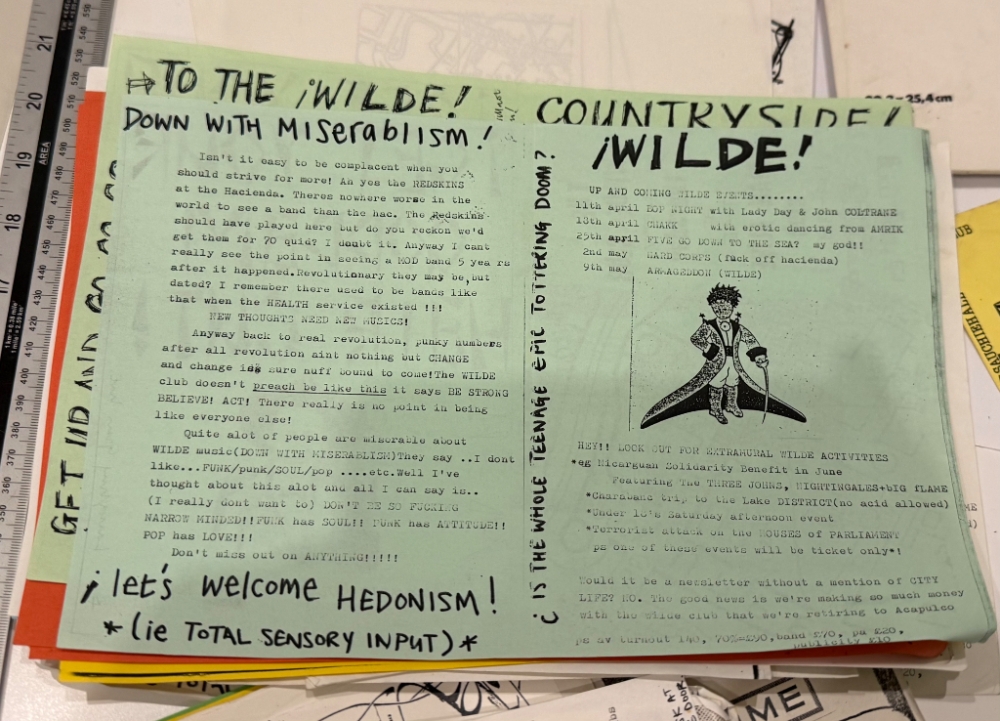 ⇒TO THE ¡WILDE!
COUNTRYSIDE!
DOWN WITH MISerablism!
Isn't it easy to be complacent when you
should strive for more! Ah yes the REDSKINS
at the Hacienda. Theres nowhere worse in the
world to see a band than the hac. The Redskins
should have played here but do you reckon we'd
get them for 70 quid? I doubt it. Anyway I cant
really see the point in seeing a MOD band 5 years
after it happened.Revolutionary they may be,but
dated? I remember there used to be bands like
that when the HEALTH service existed !!!
NEW THOUGHTS NEED NEW MUSICS!
Anyway back to real revolution, punky numbers
after all revolution aint nothing but CHANGE
and change is sure nuff bound to come!The WILDE
club doesn't preach be like this it says BE STRONG
BELIEVE! ACT! There really is no point in being
like everyone else!
Quite alot of people are miserable about
WILDE music(DOWN WITH MISERABLISM)They say ..I dont
like...FUNK/punk/SOUL/pop ....etc.Well I've
thought about this alot and all I can say is..
(I really dont want to) DON'T BE SO FUCKING
NARROW MINDED!!FUNK has SOUL!! PUNK has ATTITUDE!!
POP has LOVE!!!
Don't miss out on ANYTHING!!!!!
¡ let's welcome HEDONISM!
*(ie TOTAL SENSORY INPUT)*
¿ IS THE WHOLE TEENAGE EPIC TOTTERING DOOM?
¡WILDE!
UP AND COMING WILDE EVENTS.........
11th april BOP NIGHT with Lady Day & John COLTRANE
18th april SHARK with erotic dancing from AMRIK
25th april FIVE GO DOWN TO THE SEA? my god!!
2nd may HARD CORPS (fuck off hacienda)
9th may ARMAGEDDON (WILDE)
HEY!! LOOK OUT FOR EXTRAMURAL WILDE ACTIVITIES
*eg Nicaraguan Solidarity Benefit in June
Featuring The THREE JOHNS, NIGHTINGALES+bIG fLAME
*Charabanc trip to the Lake DISTRICT(no acid allowed)
*Under 18's Saturday afternoon event
*Terrorist attack on the HOUSES OF PARLIAMENT
ps one of these events will be ticket only*!
Would it be a newsletter without a mention of CITY
LIFE? NO. The good news is we're making so much money
with the Wilde club that we're retiring to Acapulco
ps av turnout 140, 70%=£90,band £70, pa £20,
publicity £10
GET UP AND
25,4cm
AREA
21
20
19
18
17
SAUCHIEHALL
ME